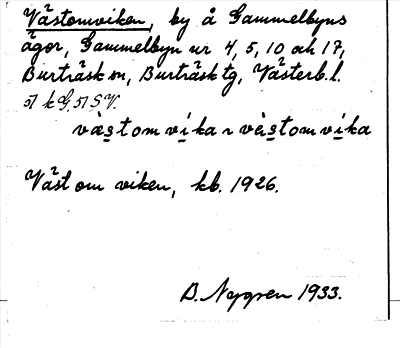 Västomviken, by å Gammelbyns
ägor, Gammelbyn nr 4, 5, 10 och 17,
Burträsk sn, Burträsk tg, Västerb. l.
västomvika ~ västomvika
Väst om viken, kb. 1926.
B. Nygren 1933.